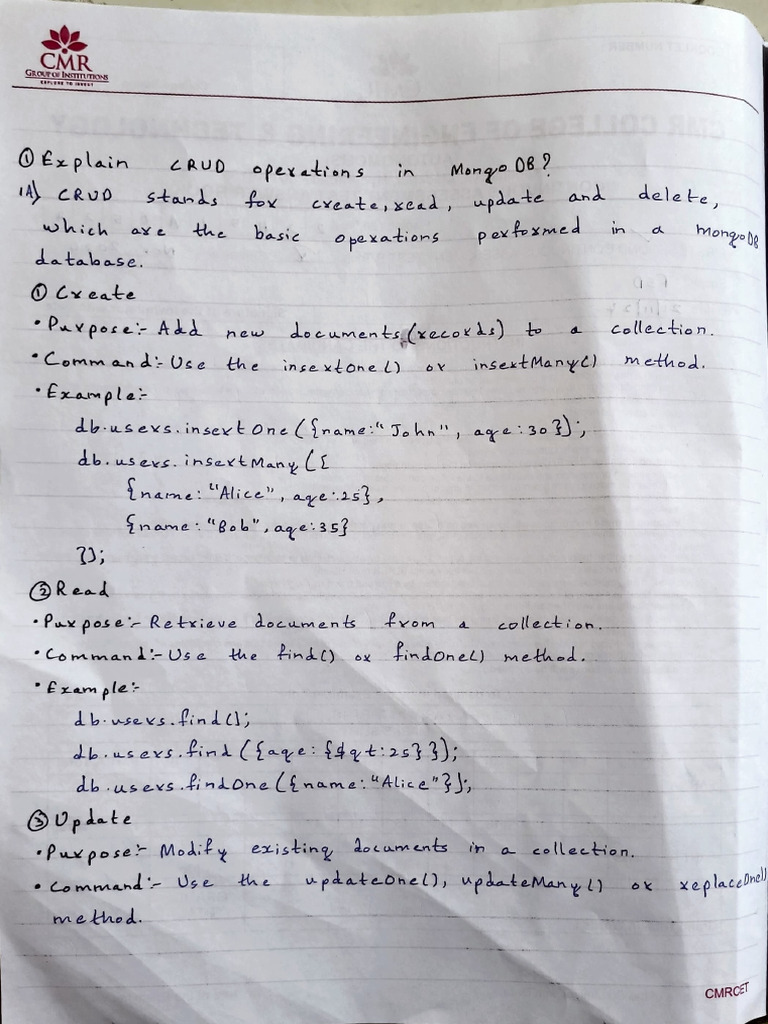 CMR
GROUP OF INSTITUTIONS
EXPLORE TO INVENT
① Explain CRUD operations in MongoDB?
1A) CRUD stands for create, read, update and delete,
which are the basic operations performed in a mongoDB
database.
① Create
• Purpose:- Add new documents (records) to a collection.
• Command:- Use the insertOne() or insertMany() method.
• Example:-
db.users.insertOne({name:"John", age:30});
db.users.insertMany([{
{name:"Alice", age:25},
{name:"Bob", age:35}
}]);
② Read
• Purpose:- Retrieve documents from a collection.
• Command:- Use the find() or findOne() method.
• Example:-
db.users.find();
db.users.find({age:{$gt:25}});
db.users.findOne({name:"Alice"});
③ Update
• Purpose:- Modify existing documents in a collection.
• Command:- Use the updateOne(), updateMany() or replaceOne()
method.
CMRCET